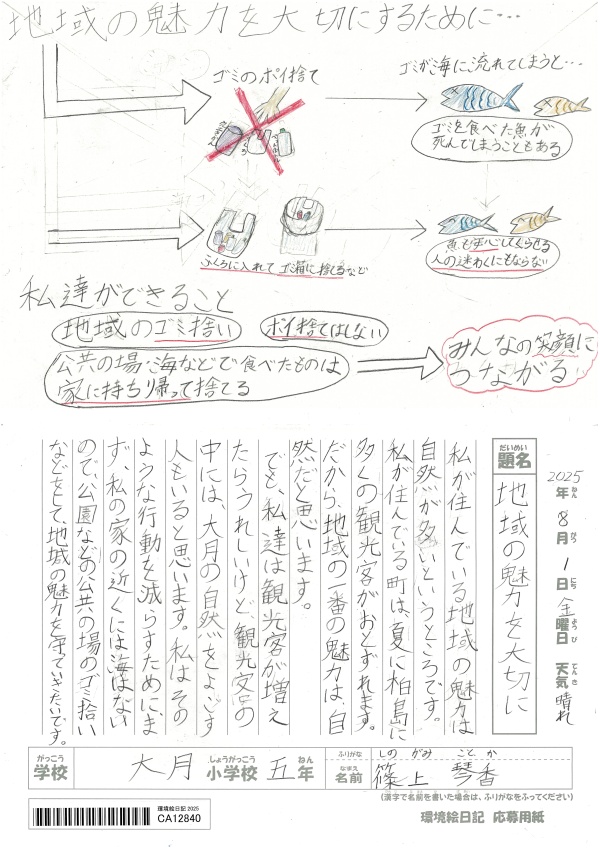 地域の魅力を大切にするために…
ゴミのポイ捨て
ゴミが海に流れてしまうと…
ゴミを食べた魚が
死んでしまうこともある
ふくろに入れてゴミ箱に捨てるなど
魚も安心してくらせる
人の迷わくにもならない
私達ができること
地域のゴミ拾い
ポイ捨てはしない
公共の場・海などで食べたものは
家に持ち帰って捨てる
みんなの笑顔に
つながる
2025年ねん8月がつ1日にち金曜日ようび 天気てんき晴れ
だいめい
題名
地域の魅力を大切に
私が住んでいる地域の魅力は
自然が多いというところです。
私が住んでいる町は、夏に柏島に
多くの観光客がおとずれます。
だから、地域の一番の魅力は、自
然だと思います。
でも、私達は観光客が増え
たらうれしいけど、観光客の
中には、大月の自然をよごす
人もいると思います。私はその
ような行動を減らすために、ま
ず、私の家の近くには海はない
ので、公園などの公共の場のゴミ拾い
などをして、地域の魅力を守っていきたいです。
がっこう しょうがっこう ねん ふりがな しの がみ こと か
学校 大月小学校 五年 なまえ 名前 篠上 琴香
(漢字で名前を書いた場合は、ふりがなをふってください)
環境絵日記 応募用紙
環境絵日記 2025
CA12840